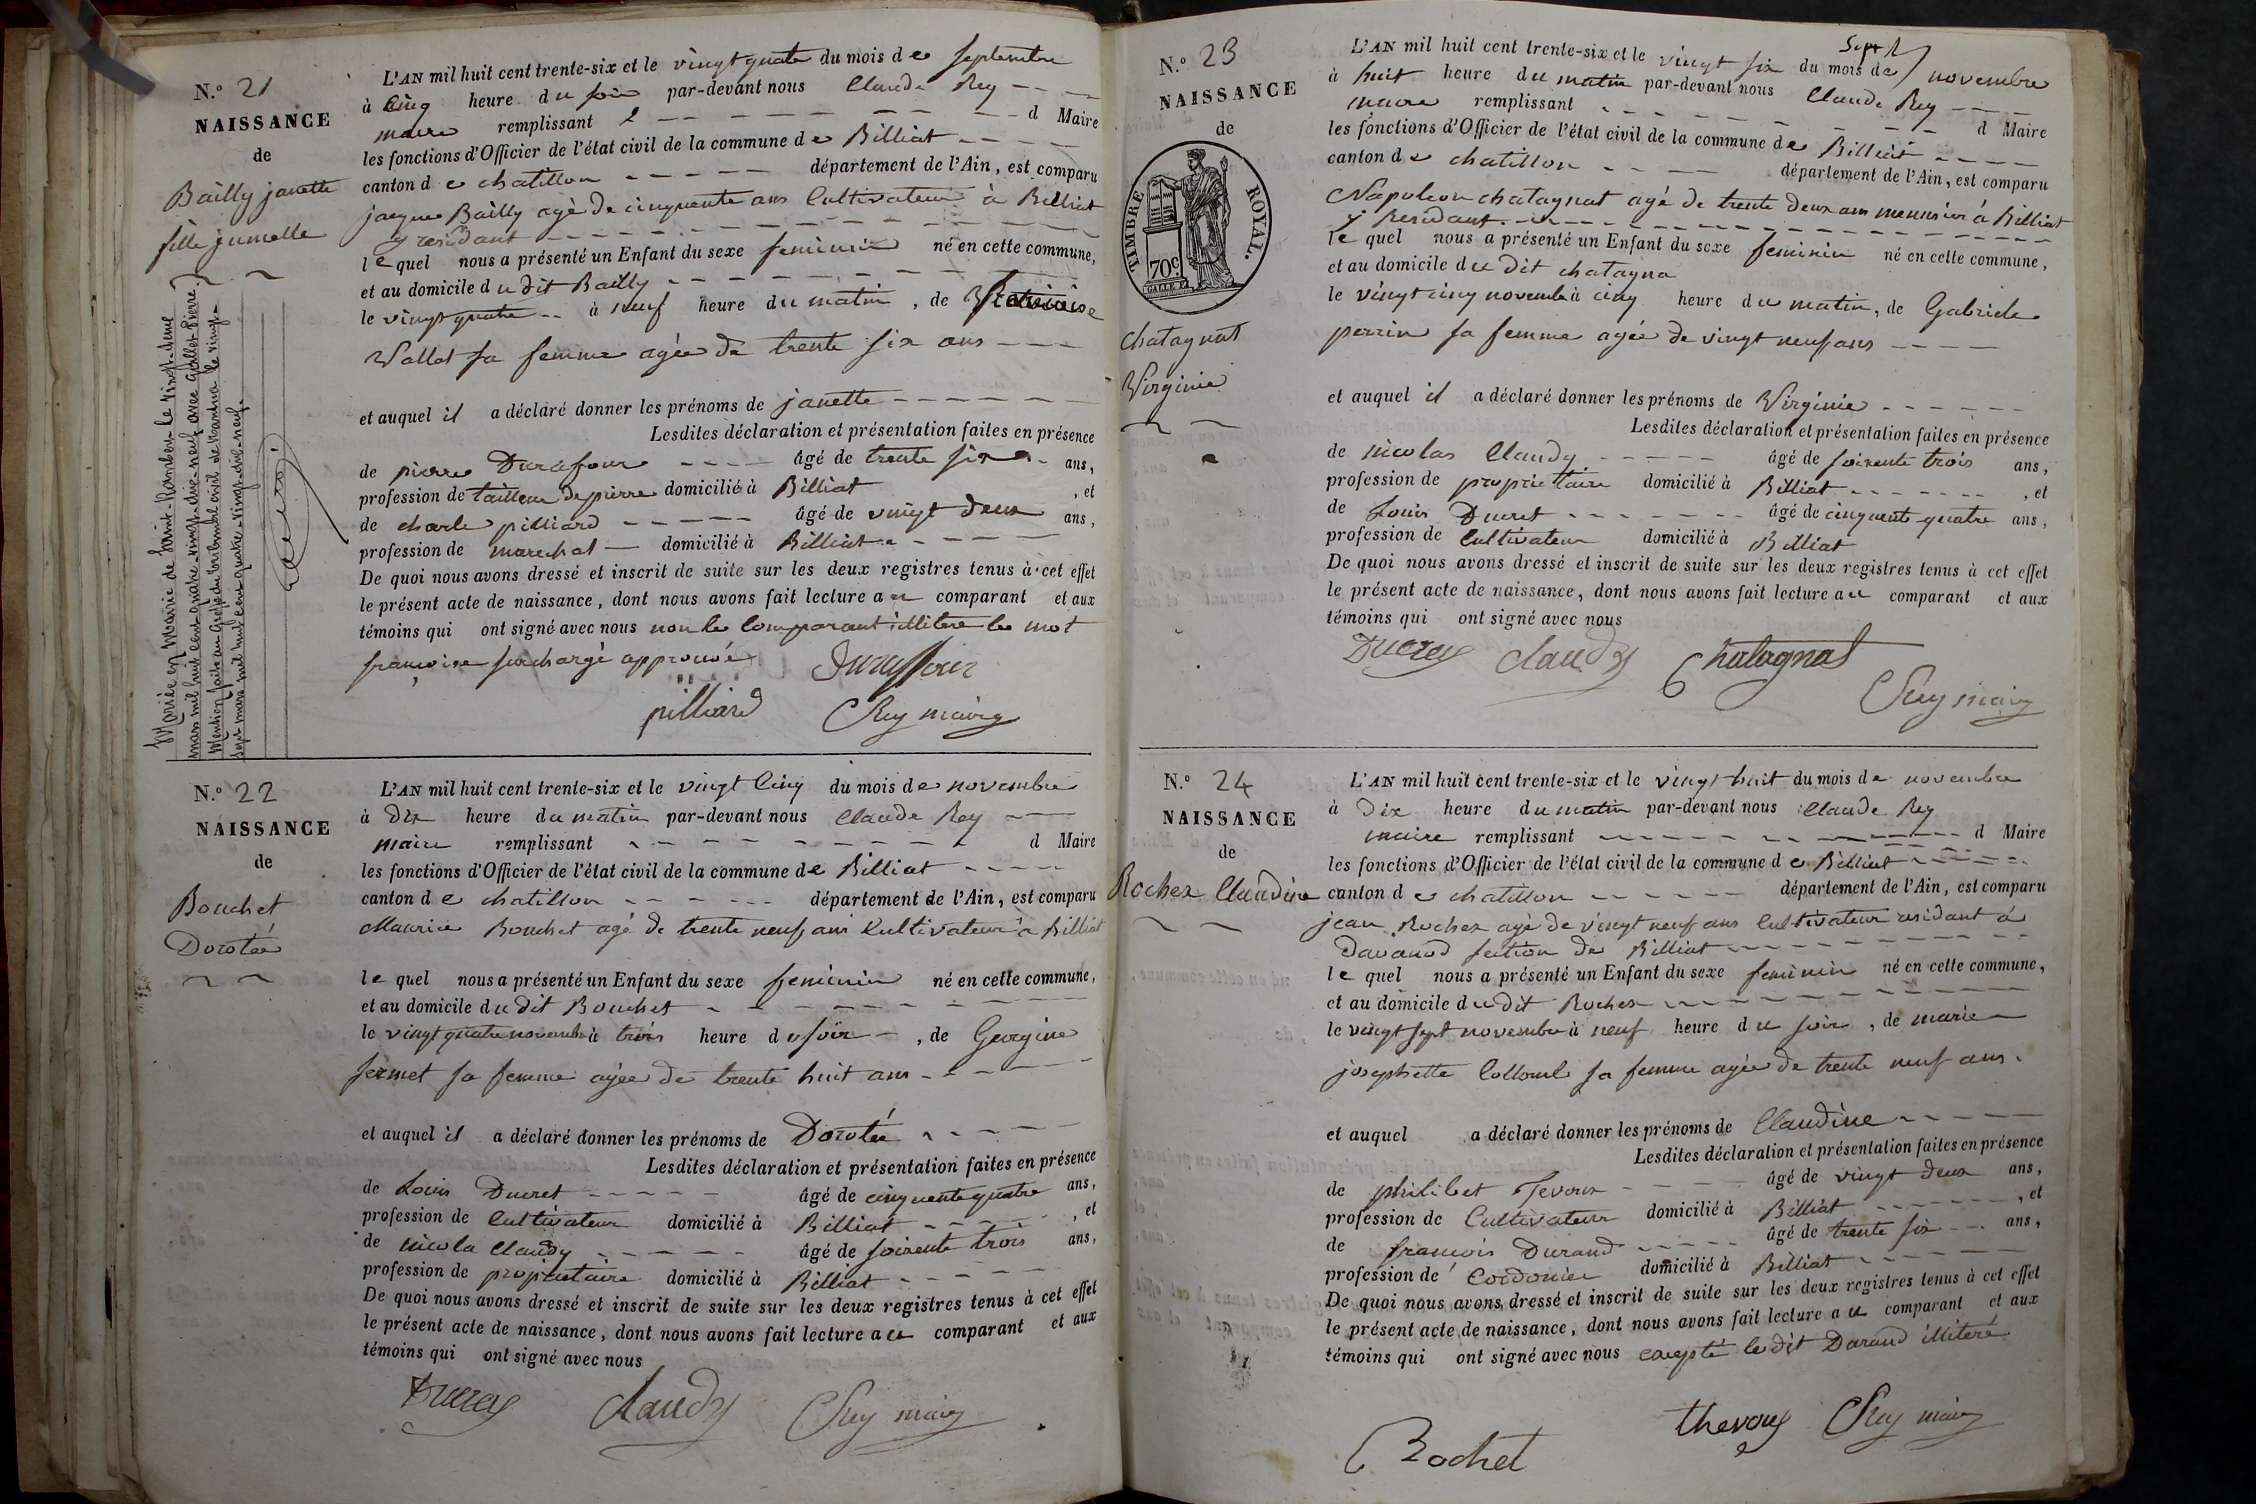 N.º 21
NAISSANCE
de
Bailly janette
fille jumelle
Mariée en Mairie de Saint-Rambert le vingt-deux
mars mil huit cent quatre-vingt-dix-neuf avec Gallet Pierre.
Mention faite au Greffe du tribunal civil de Nantua le vingt-
sept mars mil huit cent quatre-vingt-dix-neuf.
L'AN mil huit cent trente-six et le vingt quatre du mois de septembre
à cinq heure du soir par-devant nous Claude Rey
maire remplissant d Maire
les fonctions d'Officier de l'état civil de la commune de Billiat
canton de chatillon département de l'Ain, est comparu
jacque Bailly agé de cinquente ans Cultivateur à Billiat
y residant
le quel nous a présenté un Enfant du sexe feminin né en cette commune,
et au domicile du dit Bailly
le vingt quatre à neuf heure du matin, de francoise
Vallet sa femme agée de trente six ans
et auquel il a déclaré donner les prénoms de janette
Lesdites déclaration et présentation faites en présence
de pierre Durafour âgé de trente six ans,
profession de tailleur de pierre domicilié à Billiat, et
de charle pilliard âgé de vingt deux ans,
profession de marechal domicilié à Billiat
De quoi nous avons dressé et inscrit de suite sur les deux registres tenus à cet effet
le présent acte de naissance, dont nous avons fait lecture au comparant et aux
témoins qui ont signé avec nous non le comparant illitere le mot
françoise surchargé approuvé Duraffour
pilliard Rey maire
N.º 22
NAISSANCE
de
Bouchet
Dorotée
L'AN mil huit cent trente-six et le vingt cinq du mois de novembre
à dix heure du matin par-devant nous Claude Rey
maire remplissant d Maire
les fonctions d'Officier de l'état civil de la commune de Billiat
canton de chatillon département de l'Ain, est comparu
Maurice Bouchet agé de trente neuf ans Cultivateur à Billiat
le quel nous a présenté un Enfant du sexe feminin né en cette commune,
et au domicile du dit Bouchet
le vingt quatre novembre à trois heure du soir, de Georgine
fermet sa femme agée de trente huit ans
et auquel il a déclaré donner les prénoms de Dorotée
Lesdites déclaration et présentation faites en présence
de Louis Ducret âgé de cinquente quatre ans,
profession de Cultivateur domicilié à Billiat, et
de nicola Claudy âgé de soixente trois ans,
profession de propriétaire domicilié à Billiat
De quoi nous avons dressé et inscrit de suite sur les deux registres tenus à cet effet
le présent acte de naissance, dont nous avons fait lecture au comparant et aux
témoins qui ont signé avec nous
Claudy Rey maire
N.º 23
NAISSANCE
de
TIMBRE ROYAL.
70c.
chatagnat
Virginie
L'AN mil huit cent trente-six et le vingt six du mois de novembre
à huit heure du matin par-devant nous Claude Rey
maire remplissant d Maire
les fonctions d'Officier de l'état civil de la commune de Billiat
canton de chatillon département de l'Ain, est comparu
Napoleon chatagnat agé de trente deux ans menusier à Billiat
y residant
le quel nous a présenté un Enfant du sexe feminin né en cette commune,
et au domicile du dit chatagna
le vingt cinq novembre à cinq heure du matin, de Gabriele
perrin sa femme agée de vingt neuf ans
et auquel il a déclaré donner les prénoms de Virginie
Lesdites déclaration et présentation faites en présence
de nicolas Claudy âgé de soixente trois ans,
profession de proprietaire domicilié à Billiat, et
de Louis Ducret âgé de cinquente quatre ans,
profession de Cultivateur domicilié à Billiat
De quoi nous avons dressé et inscrit de suite sur les deux registres tenus à cet effet
le présent acte de naissance, dont nous avons fait lecture au comparant et aux
témoins qui ont signé avec nous
Claudy Chatagnat
Rey maire
N.º 24
NAISSANCE
de
Rochez Claudine
L'AN mil huit cent trente-six et le vingt huit du mois de novembre
à dix heure du matin par-devant nous Claude Rey
maire remplissant d Maire
les fonctions d'Officier de l'état civil de la commune de Billiat
canton de chatillon département de l'Ain, est comparu
jean Rochez agé de vingt neuf ans Cultivateur residant à
Davanod section de Billiat
le quel nous a présenté un Enfant du sexe feminin né en cette commune,
et au domicile du dit Rochez
le vingt sept novembre à neuf heure du soir, de marie
josephette Collomb sa femme agée de trente neuf ans.
et auquel a déclaré donner les prénoms de Claudine
Lesdites déclaration et présentation faites en présence
de philibet Tevoux âgé de vingt deux ans,
profession de Cultivateur domicilié à Billiat, et
de francois Durand âgé de trente six ans,
profession de Cordonier domicilié à Billiat
De quoi nous avons dressé et inscrit de suite sur les deux registres tenus à cet effet
le présent acte de naissance, dont nous avons fait lecture au comparant et aux
témoins qui ont signé avec nous excepté le dit Durand illiteré
Rochet Rey maire